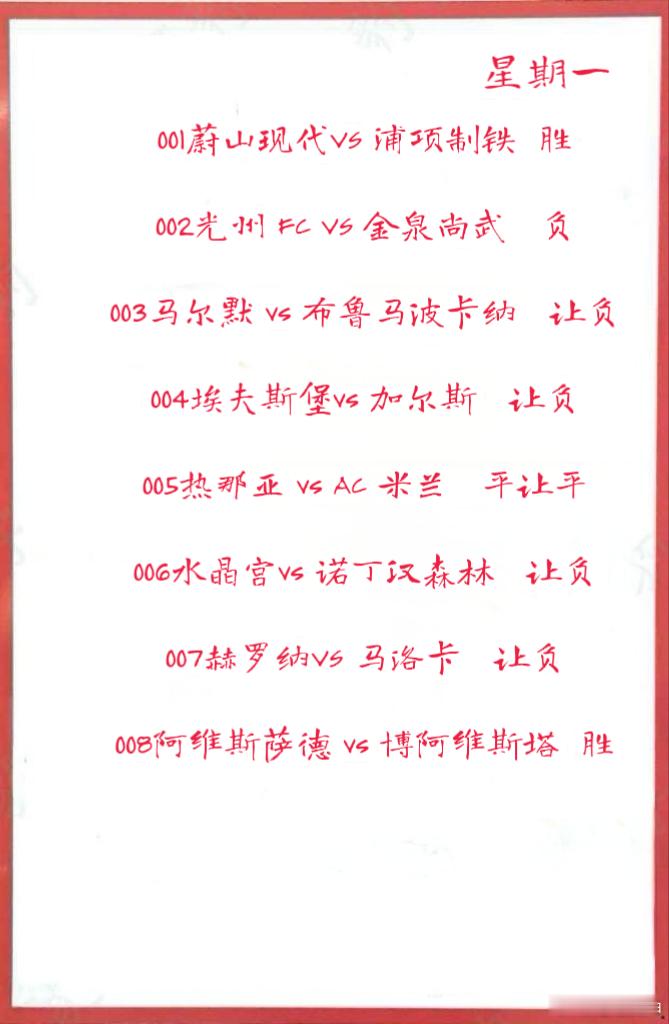 星期一
001蔚山现代VS 浦项制铁 胜
002光州 FC VS 金泉尚武 负
003马尔默 vs 布鲁马波卡纳 让负
004埃夫斯堡vs 加尔斯 让负
005热那亚 vs AC 米兰 平让平
006水晶宫vs 诺丁汉森林 让负
007赫罗纳VS 马洛卡 让负
008阿维斯萨德 vs 博阿维斯塔 胜